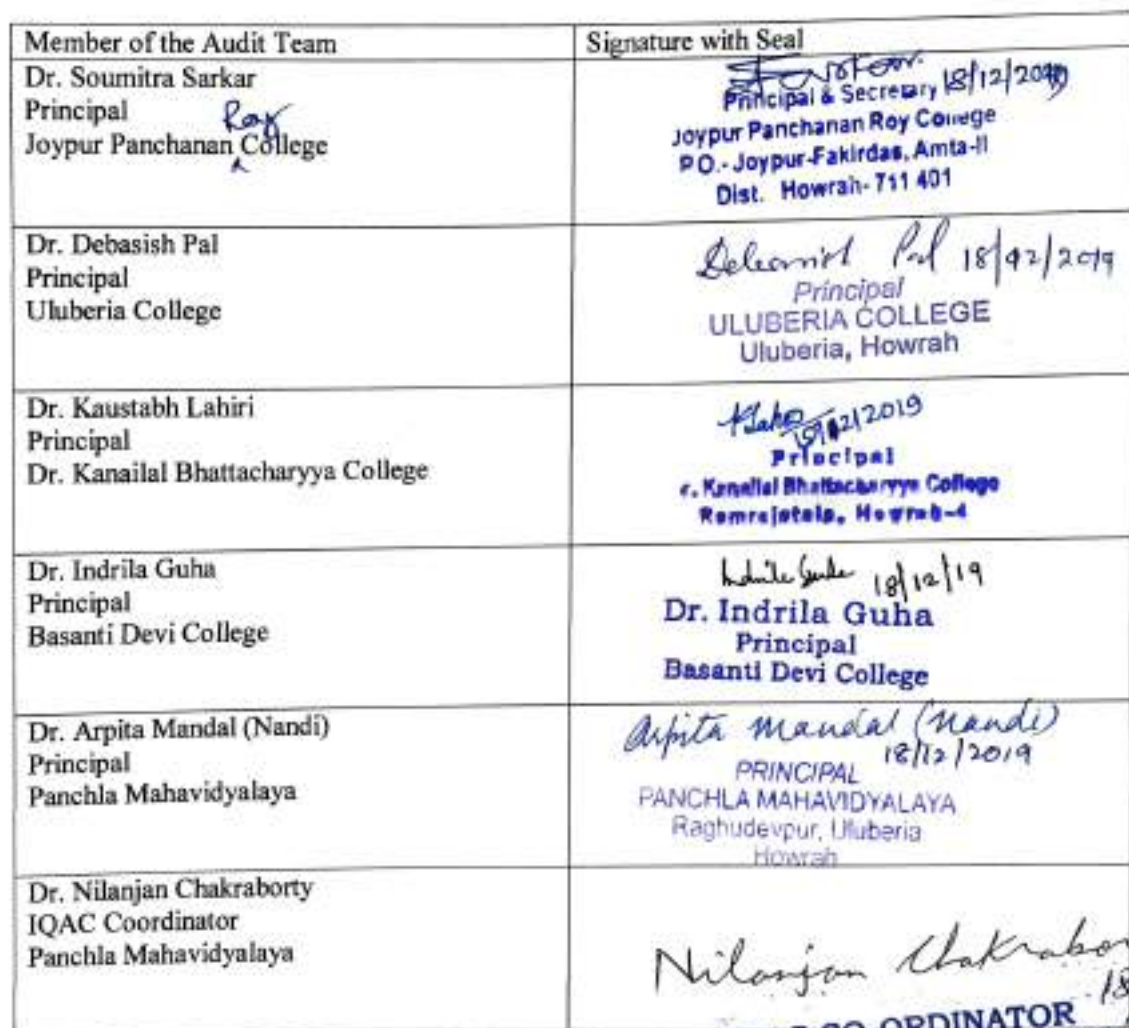 Member of the Audit Team
Signature with Seal
Dr. Soumitra Sarkar
Principal
Roy
Joypur Panchanan College
18/12/2019
Principal & Secretary
Joypur Panchanan Roy College
P.O.- Joypur-Fakirdas, Amta-II
Dist. Howrah- 711 401
Dr. Debasish Pal
Principal
Uluberia College
Debasish Pal 18/12/2019
Principal
ULUBERIA COLLEGE
Uluberia, Howrah
Dr. Kaustabh Lahiri
Principal
Dr. Kanailal Bhattacharyya College
18/12/2019
Principal
r. Kanailal Bhattacharyya College
Ramrajatala, Howrah-4
Dr. Indrila Guha
Principal
Basanti Devi College
Indrila Guha 18/12/19
Dr. Indrila Guha
Principal
Basanti Devi College
Dr. Arpita Mandal (Nandi)
Principal
Panchla Mahavidyalaya
Arpita Mandal (Nandi)
18/12/2019
PRINCIPAL
PANCHLA MAHAVIDYALAYA
Raghudevpur, Uluberia
Howrah
Dr. Nilanjan Chakraborty
IQAC Coordinator
Panchla Mahavidyalaya
Nilanjan Chakrabor
18
CO-ORDINATOR